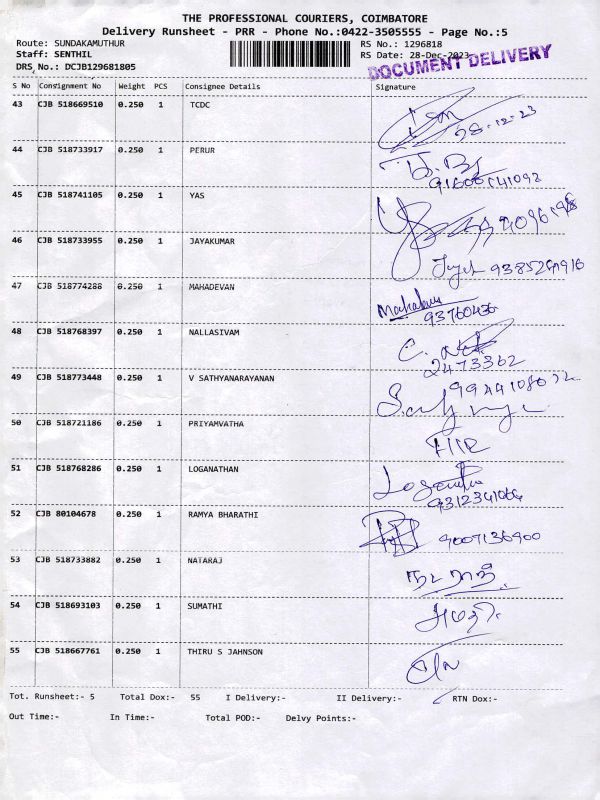 THE PROFESSIONAL COURIERS, COIMBATORE
Delivery Runsheet - PRR - Phone No.:0422-3505555 - Page No.:5
Route: SUNDAKAMUTHUR RS No.: 1296818
Staff: SENTHIL RS Date: 28-Dec-2023
DRS No.: DCJB129681805 DOCUMENT DELIVERY
S No Consignment No Weight PCS Consignee Details Signature
43 CJB 518669510 0.250 1 TCDC
28-12-23
44 CJB 518733917 0.250 1 PERUR
45 CJB 518741105 0.250 1 YAS
46 CJB 518733955 0.250 1 JAYAKUMAR
47 CJB 518774288 0.250 1 MAHADEVAN
93760436
48 CJB 518768397 0.250 1 NALLASIVAM
2473362
49 CJB 518773448 0.250 1 V SATHYANARAYANAN
50 CJB 518721186 0.250 1 PRIYAMVATHA
51 CJB 518768286 0.250 1 LOGANATHAN
9312341064
52 CJB 80104678 0.250 1 RAMYA BHARATHI
9007136900
53 CJB 518733882 0.250 1 NATARAJ
நடராஜ்
54 CJB 518693103 0.250 1 SUMATHI
சுமதி
55 CJB 518667761 0.250 1 THIRU S JAHNSON
Tot. Runsheet:- 5 Total Dox:- 55 I Delivery:- II Delivery:- RTN Dox:-
Out Time:- In Time:- Total POD:- Delvy Points:-